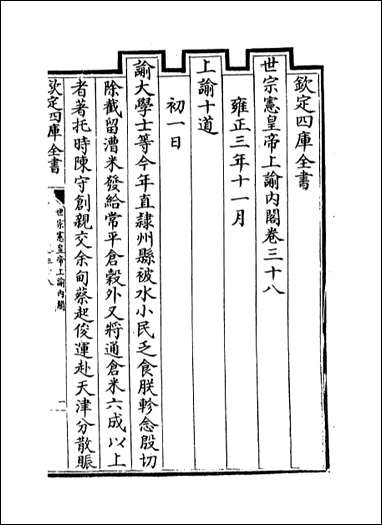 欽定四庫全書
世宗憲皇帝上諭內閣卷三十八
雍正三年十一月
上諭十道
初一日
諭大學士等今年直隸州縣被水小民乏食朕軫念殷切
除截留漕米發給常平倉穀外又將通倉米六成以上
者著托時陳守創親交余甸蔡起俊運赴天津分散賑
欽定四庫全書
世宗憲皇帝上諭內閣